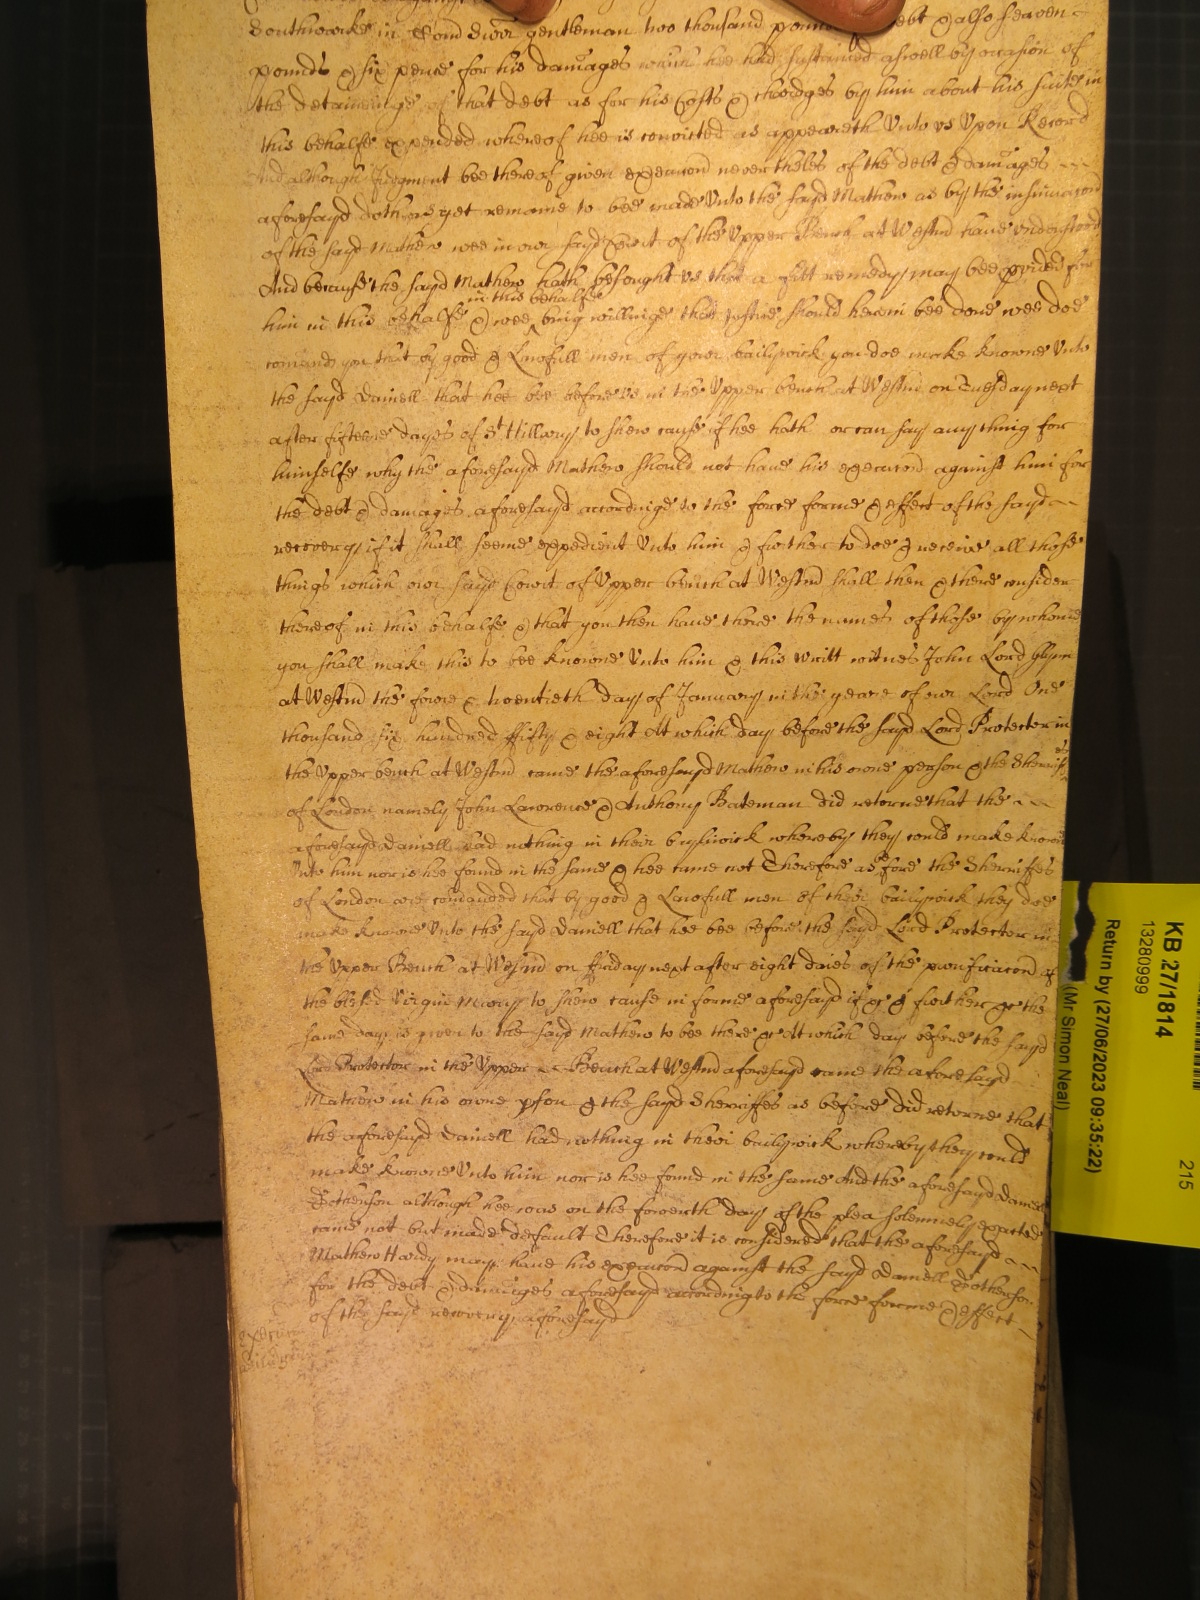 Southwarke in gentleman two thousand debt & also seaven
pounds & six pence for his damages which hee had sustained aswell by occasion of
the detaininge of that debt as for his Costs & chardges by him about his suite in
this behalfe expended whereof hee is convicted as appeareth unto us upon Record
And although Judgment bee thereof given execucon neverthelés of the debt & damages
aforesayd doth as yet remaine to bee made unto the sayd Mathew as by the insinuacon
of the sayd Mathew wee in our sayd Court of the Upper Bench at Westm have understood
And because the sayd Mathew hath besought us that a fitt remedy may bee pvided for
in this behalfe
him in this behalfe & wee being willinge that Justice should herein bee done wee doe
comand you that by good & Lawfull men of your bailywick you doe make knowne unto
the sayd Daniell that hee bee before us in the Upper bench at Westm on Tuesday next
after fifteene dayes of St Hillary to shew cause if hee hath or can say any thing for
himselfe why the aforesayd Mathew should not have his execucon against him for
the debt & damages aforesayd accordinge to the force forme & effect of the sayd
recovery if it shall seeme expedient unto him & further to doe & receive all those
things which our sayd Court of Upper bench at Westm shall then & there consider
thereof in this behalfe & that you then have there the names of those by whome
you shall make this to bee knowne unto him & this writt witnes John Lord Glynn
at Westm the fowre & twentieth day of January in the yeare of our Lord One
thousand six hundred fifty & eight At which day before the sayd Lord Protector in
the Upper bench at Westm came the aforesayd Mathew in his owne person & the Sherriffes
of London namely John Lawrence & Anthony Bateman did retorne that the
aforesayd Daniell had nothing in their bayliwick whereby they could make knowne
Unto him nor is hee found in the same & hee came not Therefore as before the Sherriffes
of London are comanded that by good & Lawfull men of their bailywick they doe
make knowne unto the sayd Daniell that hee bee before the sayd Lord Protector in
the Upper Bench at Westm on Friday next after eight daies of the purificacon of
the blessed Virgin Mary to shew cause in forme aforesayd if &c & further &c the
same day is given to the sayd Mathew to bee there &c At which day before the sayd
Lord Protector in the Upper Bench at Westm aforesayd came the aforesayd
Mathew in his owne pson & the sayd Sherriffes as before did retorne that
the aforesayd Daniell had nothing in their bailywick whereby they could
make knowne unto him nor is hee found in the same And the aforesayd Daniell
although hee was on the fowerth day of the plea solemnely exacted
came not but made default Therefore it is considered that the aforesayd
Mathew Hardy may have his execucon against the sayd Daniell
for the debt & damages aforesayd according to the force forme & effect
of the sayd recovery aforesayd
KB 27/1814
13280999
Return by (27/06/2023 09:35:22)
(Mr Simon Neal)
215